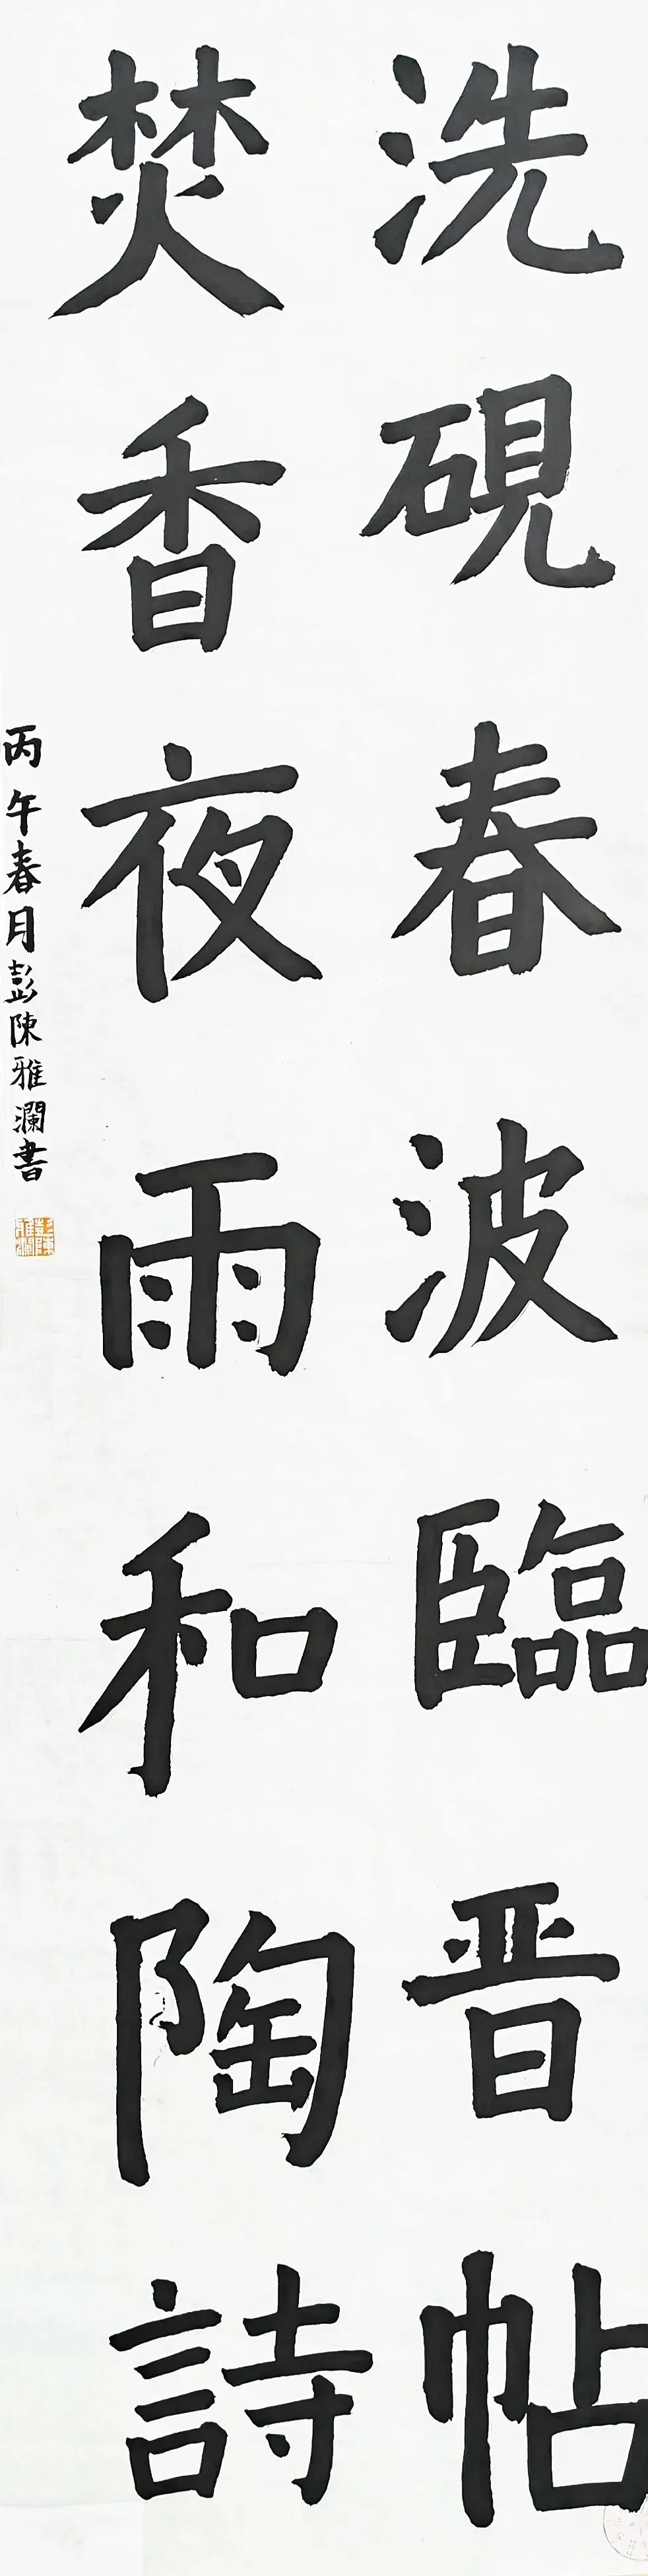 洗硯春波臨晋帖
焚香夜雨和陶詩
丙午春月彭陳雅瀾書